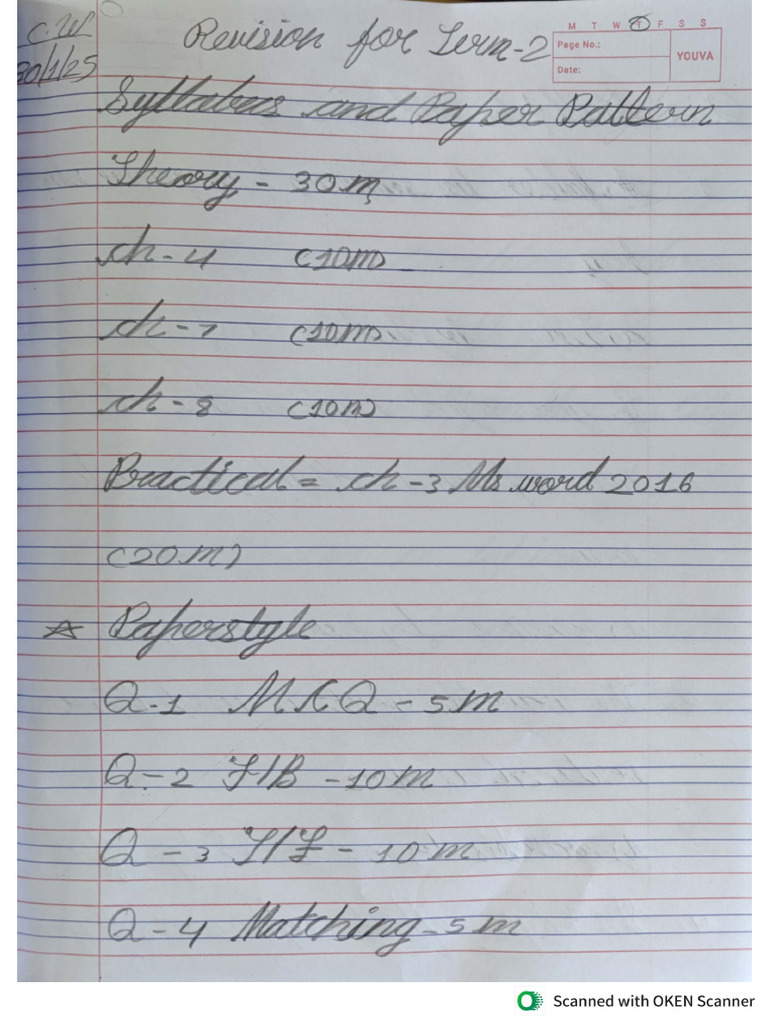 C.W
30/1/25
Revision for Term-2
M T W T F S S
Page No.:
Date:
YOUVA
Syllabus and Paper Pattern
Theory - 30m
ch-4 (10m)
ch-7 (10m)
ch-8 (10m)
Practical = ch-3 Ms word 2016
(20m)
☆ Paperstyle
Q-1 MCQ - 5m
Q-2 F/B - 10m
Q-3 T/F - 10m
Q-4 Matching - 5m
Scanned with OKEN Scanner